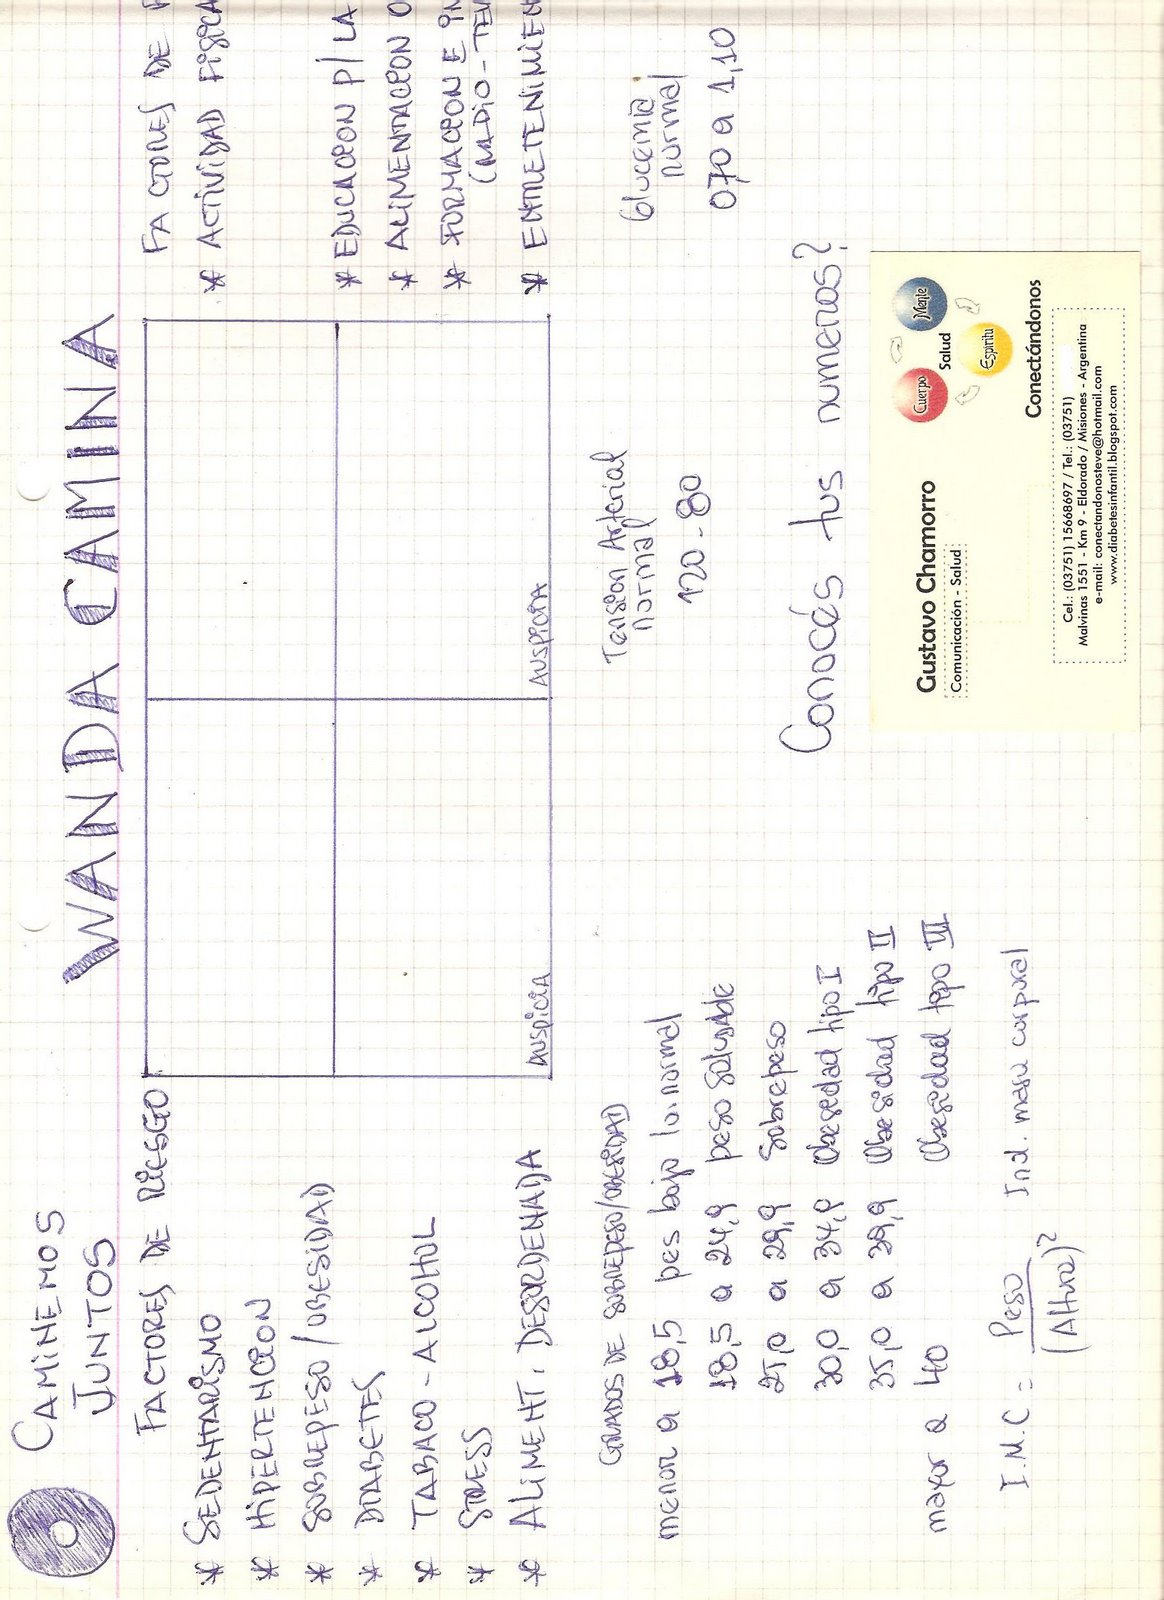 CAMINEMOS
JUNTOS
WANDA CAMINA
FACTORES DE RIESGO
* SEDENTARISMO
* HIPERTENCION
* SOBREPESO / OBESIDAD
* DIABETES
* TABACO - ALCOHOL
* STRESS
* ALIMENT. DESORDENADA
AUSPICIA
AUSPICIA
FACTORES DE
* ACTIVIDAD FISICA
* EDUCACION P/ LA
* ALIMENTACION
* FORMACION E
(RADIO - TEV
* ENTRETENIMIEN
GRADOS DE SOBREPESO/OBESIDAD
menor a 18,5 pes bajo lo normal
18,5 a 24,9 peso saludable
25,0 a 29,9 Sobrepeso
30,0 a 34,9 Obesidad tipo I
35,0 a 39,9 Obesidad tipo II
mayor a 40 Obesidad tipo III
I.M.C = Peso
(Altura)²
Ind. masa corporal
Tension Arterial
normal
120 - 80
Glucemia
normal
0,70 a 1,10
Conocés tus numeros?
Gustavo Chamorro
Comunicación - Salud
Cuerpo
Mente
Salud
Espíritu
Conectándonos
Cel.: (03751) 15668697 / Tel.: (03751)
Malvinas 1551 - Km 9 - Eldorado / Misiones - Argentina
e-mail: conectandonosteve@hotmail.com
www.diabetesinfantil.blogspot.com